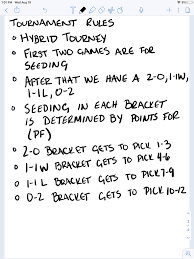 1:01 PM Wed Aug 19
TOURNAMENT RULES
o HYBRID TOURNEY
o FIRST TWO GAMES ARE FOR
SEEDING
o AFTER THAT WE HAVE A 2-0, 1-1W,
1-1L, 0-2
o SEEDING IN EACH BRACKET
IS DETERMINED BY POINTS FOR
(PF)
o 2-0 BRACKET GETS TO PICK 1-3
o 1-1W BRACKET GETS TO PICK 4-6
o 1-1L BRACKET GETS TO PICK 7-9
o 0-2 BRACKET GETS TO PICK 10-12